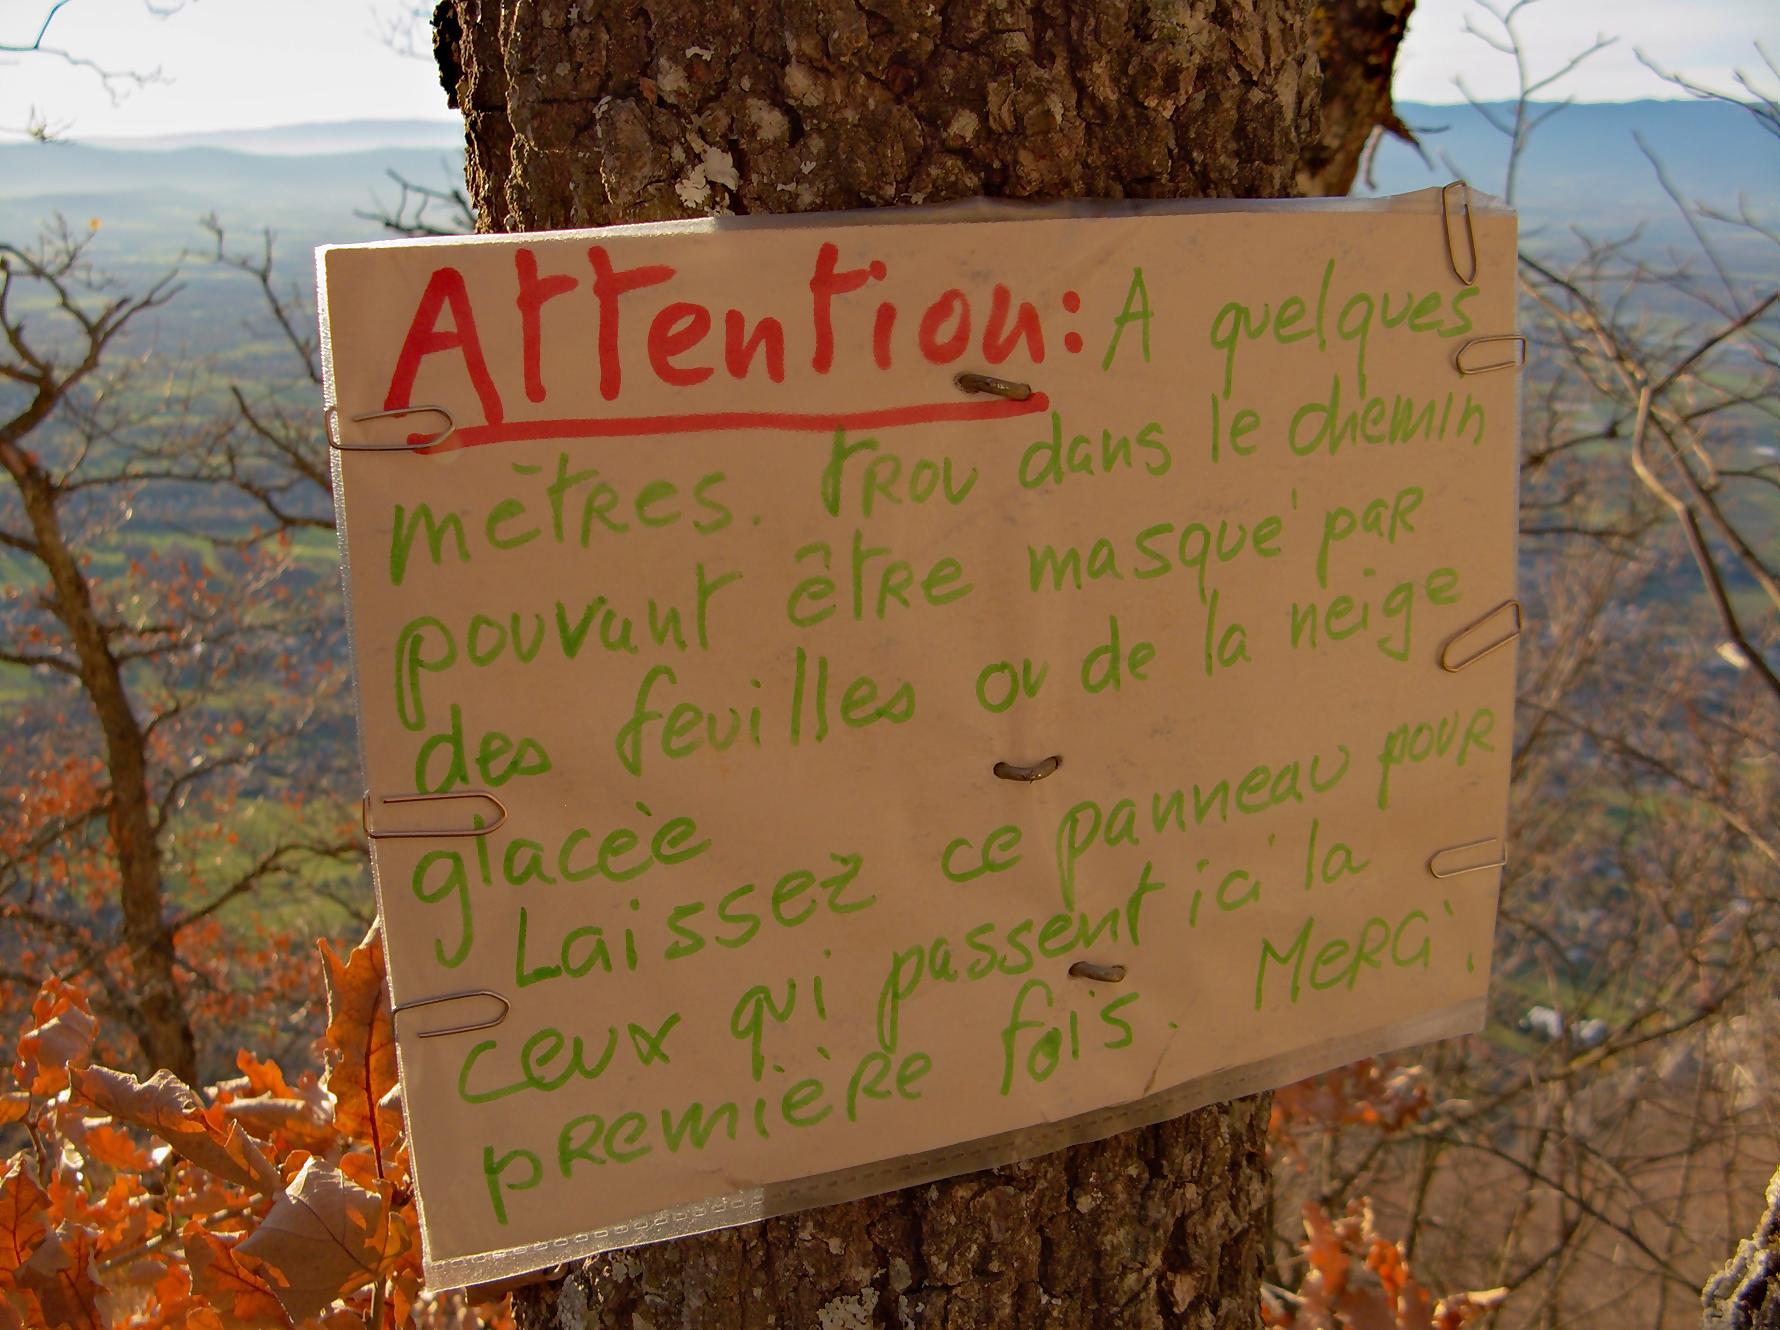 Attention: A quelques
mètres. trou dans le chemin
pouvant être masqué par
des feuilles ou de la neige
glacèe
Laissez ce panneau pour
ceux qui passent ici la
première fois. Merci.